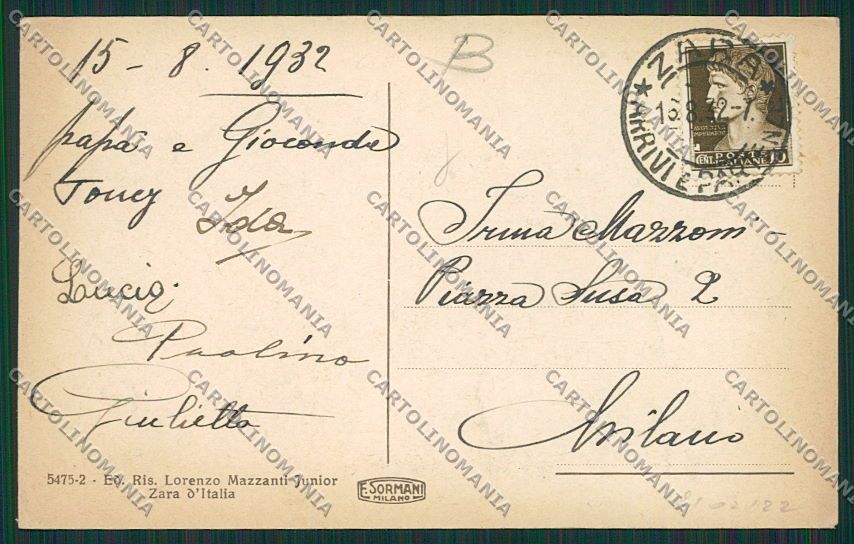 15-8.1932
papà e Gioconda
Toney Ida
Lucia
Paolino
Giulietta
5475-2 - Ed. Ris. Lorenzo Mazzanti Junior
Zara d'Italia
F. SORMANI
MILANO
B
ZARA
ARRIVI E PAR
POSTE
ITALIANE
CENT. 10
Irma Mazzoni
Piazza Susa 2
Milano
CARTOLINOMANIA